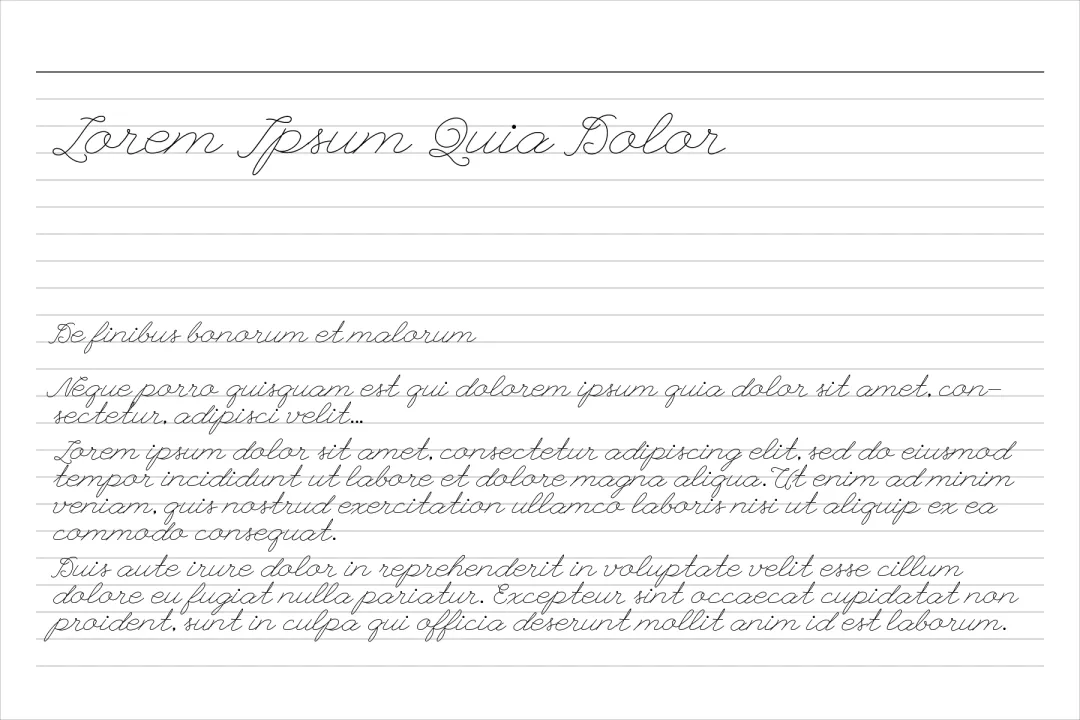 Lorem Ipsum Quia Dolor
De finibus bonorum et malorum
Neque porro quisquam est qui dolorem ipsum quia dolor sit amet, con-
sectetur, adipisci velit...
Lorem ipsum dolor sit amet, consectetur adipiscing elit, sed do eiusmod
tempor incididunt ut labore et dolore magna aliqua. Ut enim ad minim
veniam, quis nostrud exercitation ullamco laboris nisi ut aliquip ex ea
commodo consequat.
Duis aute irure dolor in reprehenderit in voluptate velit esse cillum
dolore eu fugiat nulla pariatur. Excepteur sint occaecat cupidatat non
proident, sunt in culpa qui officia deserunt mollit anim id est laborum.